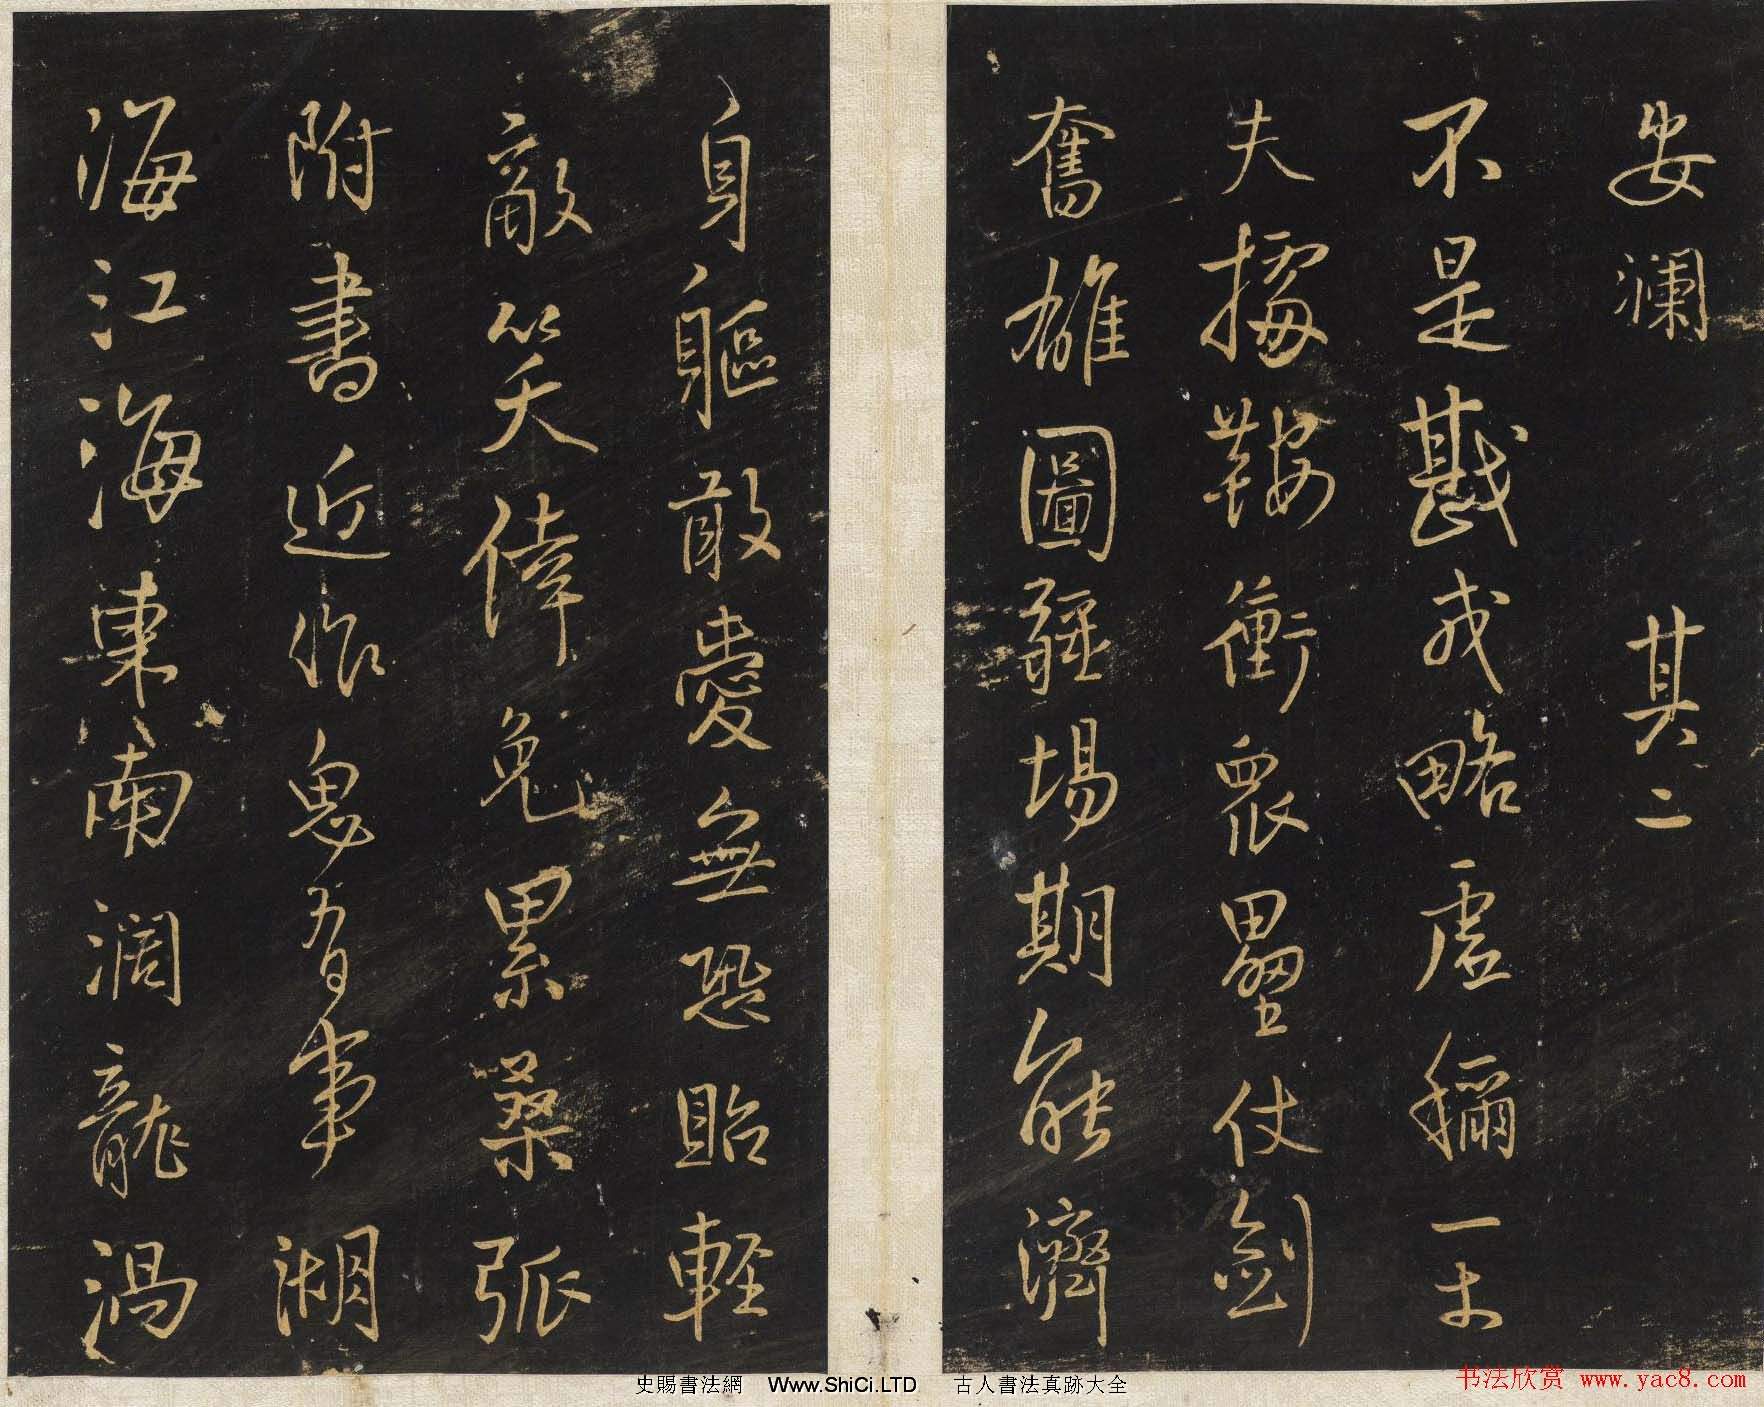 安瀾 其二
不是戡戎略虛稱一丈
夫據鞍衝眾壘仗劍
奮雄圖疆場期能濟
身軀敢愛無恐貽輕
敵笑倖免累桑弧
附書近作有事湖
海江海東南濶龍渦
史賜書法網 Www.ShiCi.LTD 古人書法真跡大全
书法欣赏 www.yac8.com